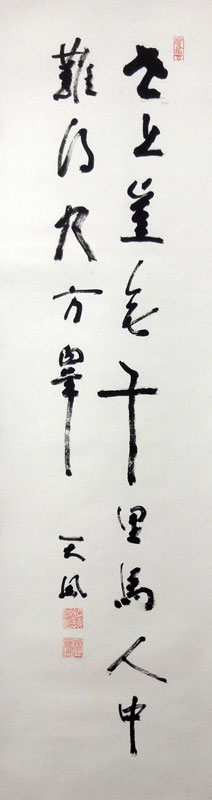 世上豈無千里馬人中
難得九方皐
天風